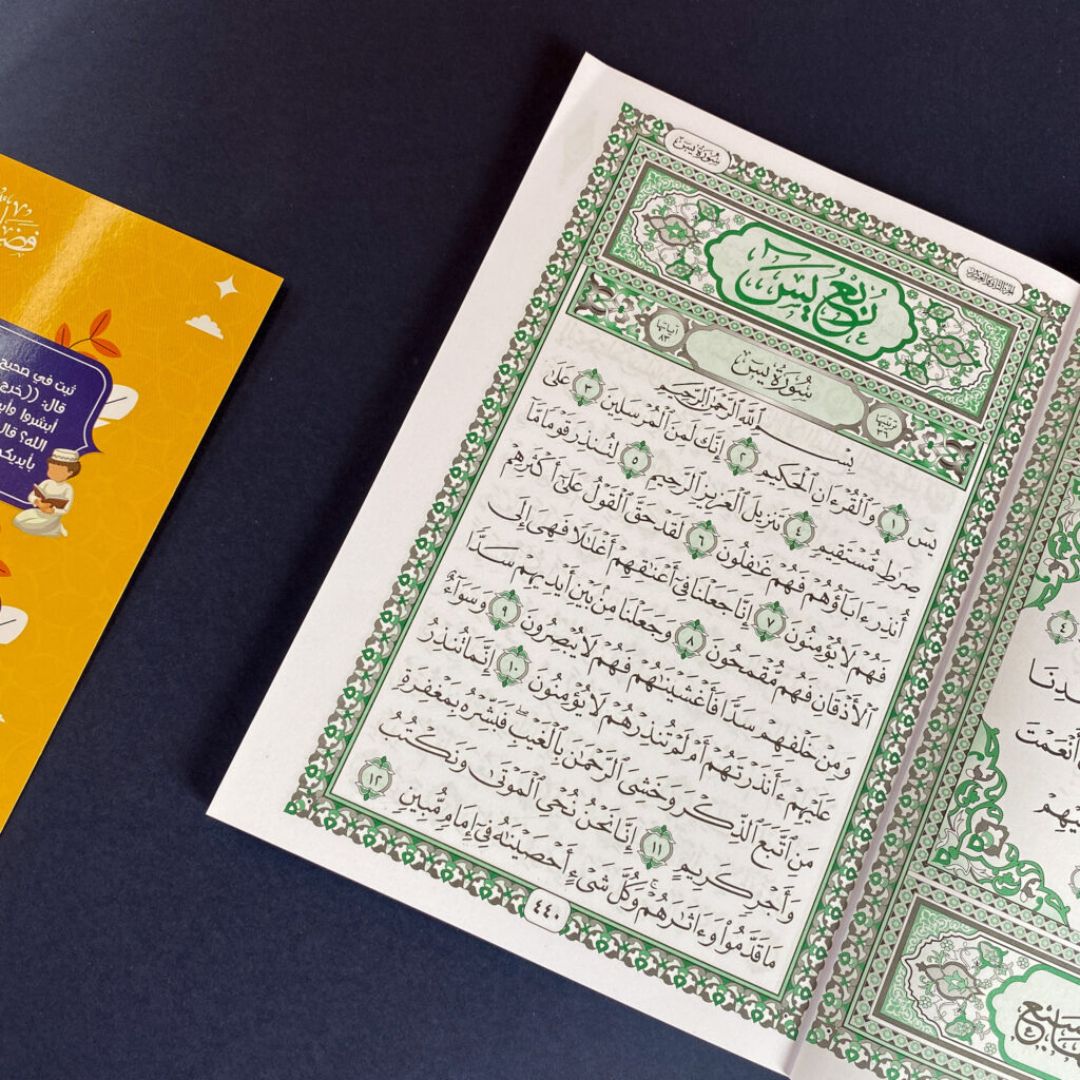 سُورَةُ يسٓ
الجزء الثاني والعشرون
رُبْعُ يسٓ
آياتها ٨٣
سُورَةُ يسٓ
ترتيبها ٣٦
بِسْمِ ٱللَّهِ ٱلرَّحْمَٰنِ ٱلرَّحِيمِ
يسٓ ١ وَٱلْقُرْءَانِ ٱلْحَكِيمِ ٢ إِنَّكَ لَمِنَ ٱلْمُرْسَلِينَ ٣ عَلَىٰ
صِرَٰطٍ مُّسْتَقِيمٍ ٤ تَنزِيلَ ٱلْعَزِيزِ ٱلرَّحِيمِ ٥ لِتُنذِرَ قَوْمًا مَّآ
أُنذِرَ ءَابَآؤُهُمْ فَهُمْ غَٰفِلُونَ ٦ لَقَدْ حَقَّ ٱلْقَوْلُ عَلَىٰٓ أَكْثَرِهِمْ
فَهُمْ لَا يُؤْمِنُونَ ٧ إِنَّا جَعَلْنَا فِىٓ أَعْنَٰقِهِمْ أَغْلَٰلًا فَهِىَ إِلَى
ٱلْأَذْقَانِ فَهُم مُّقْمَحُونَ ٨ وَجَعَلْنَا مِنۢ بَيْنِ أَيْدِيهِمْ سَدًّا
وَمِنْ خَلْفِهِمْ سَدًّا فَأَغْشَيْنَٰهُمْ فَهُمْ لَا يُبْصِرُونَ ٩ وَسَوَآءٌ
عَلَيْهِمْ ءَأَنذَرْتَهُمْ أَمْ لَمْ تُنذِرْهُمْ لَا يُؤْمِنُونَ ١٠ إِنَّمَا تُنذِرُ
مَنِ ٱتَّبَعَ ٱلذِّكْرَ وَخَشِىَ ٱلرَّحْمَٰنَ بِٱلْغَيْبِ ۖ فَبَشِّرْهُ بِمَغْفِرَةٍ
وَأَجْرٍ كَرِيمٍ ١١ إِنَّا نَحْنُ نُحْىِ ٱلْمَوْتَىٰ وَنَكْتُبُ
مَا قَدَّمُوا۟ وَءَاثَٰرَهُمْ ۚ وَكُلَّ شَىْءٍ أَحْصَيْنَٰهُ فِىٓ إِمَامٍ مُّبِينٍ ١٢
٤٤٠
٤
أَنْعَمْتَ
ثبت في صحيح
قال: ((خرج
أبشروا وأب
الله؟ قال
بأيديكم